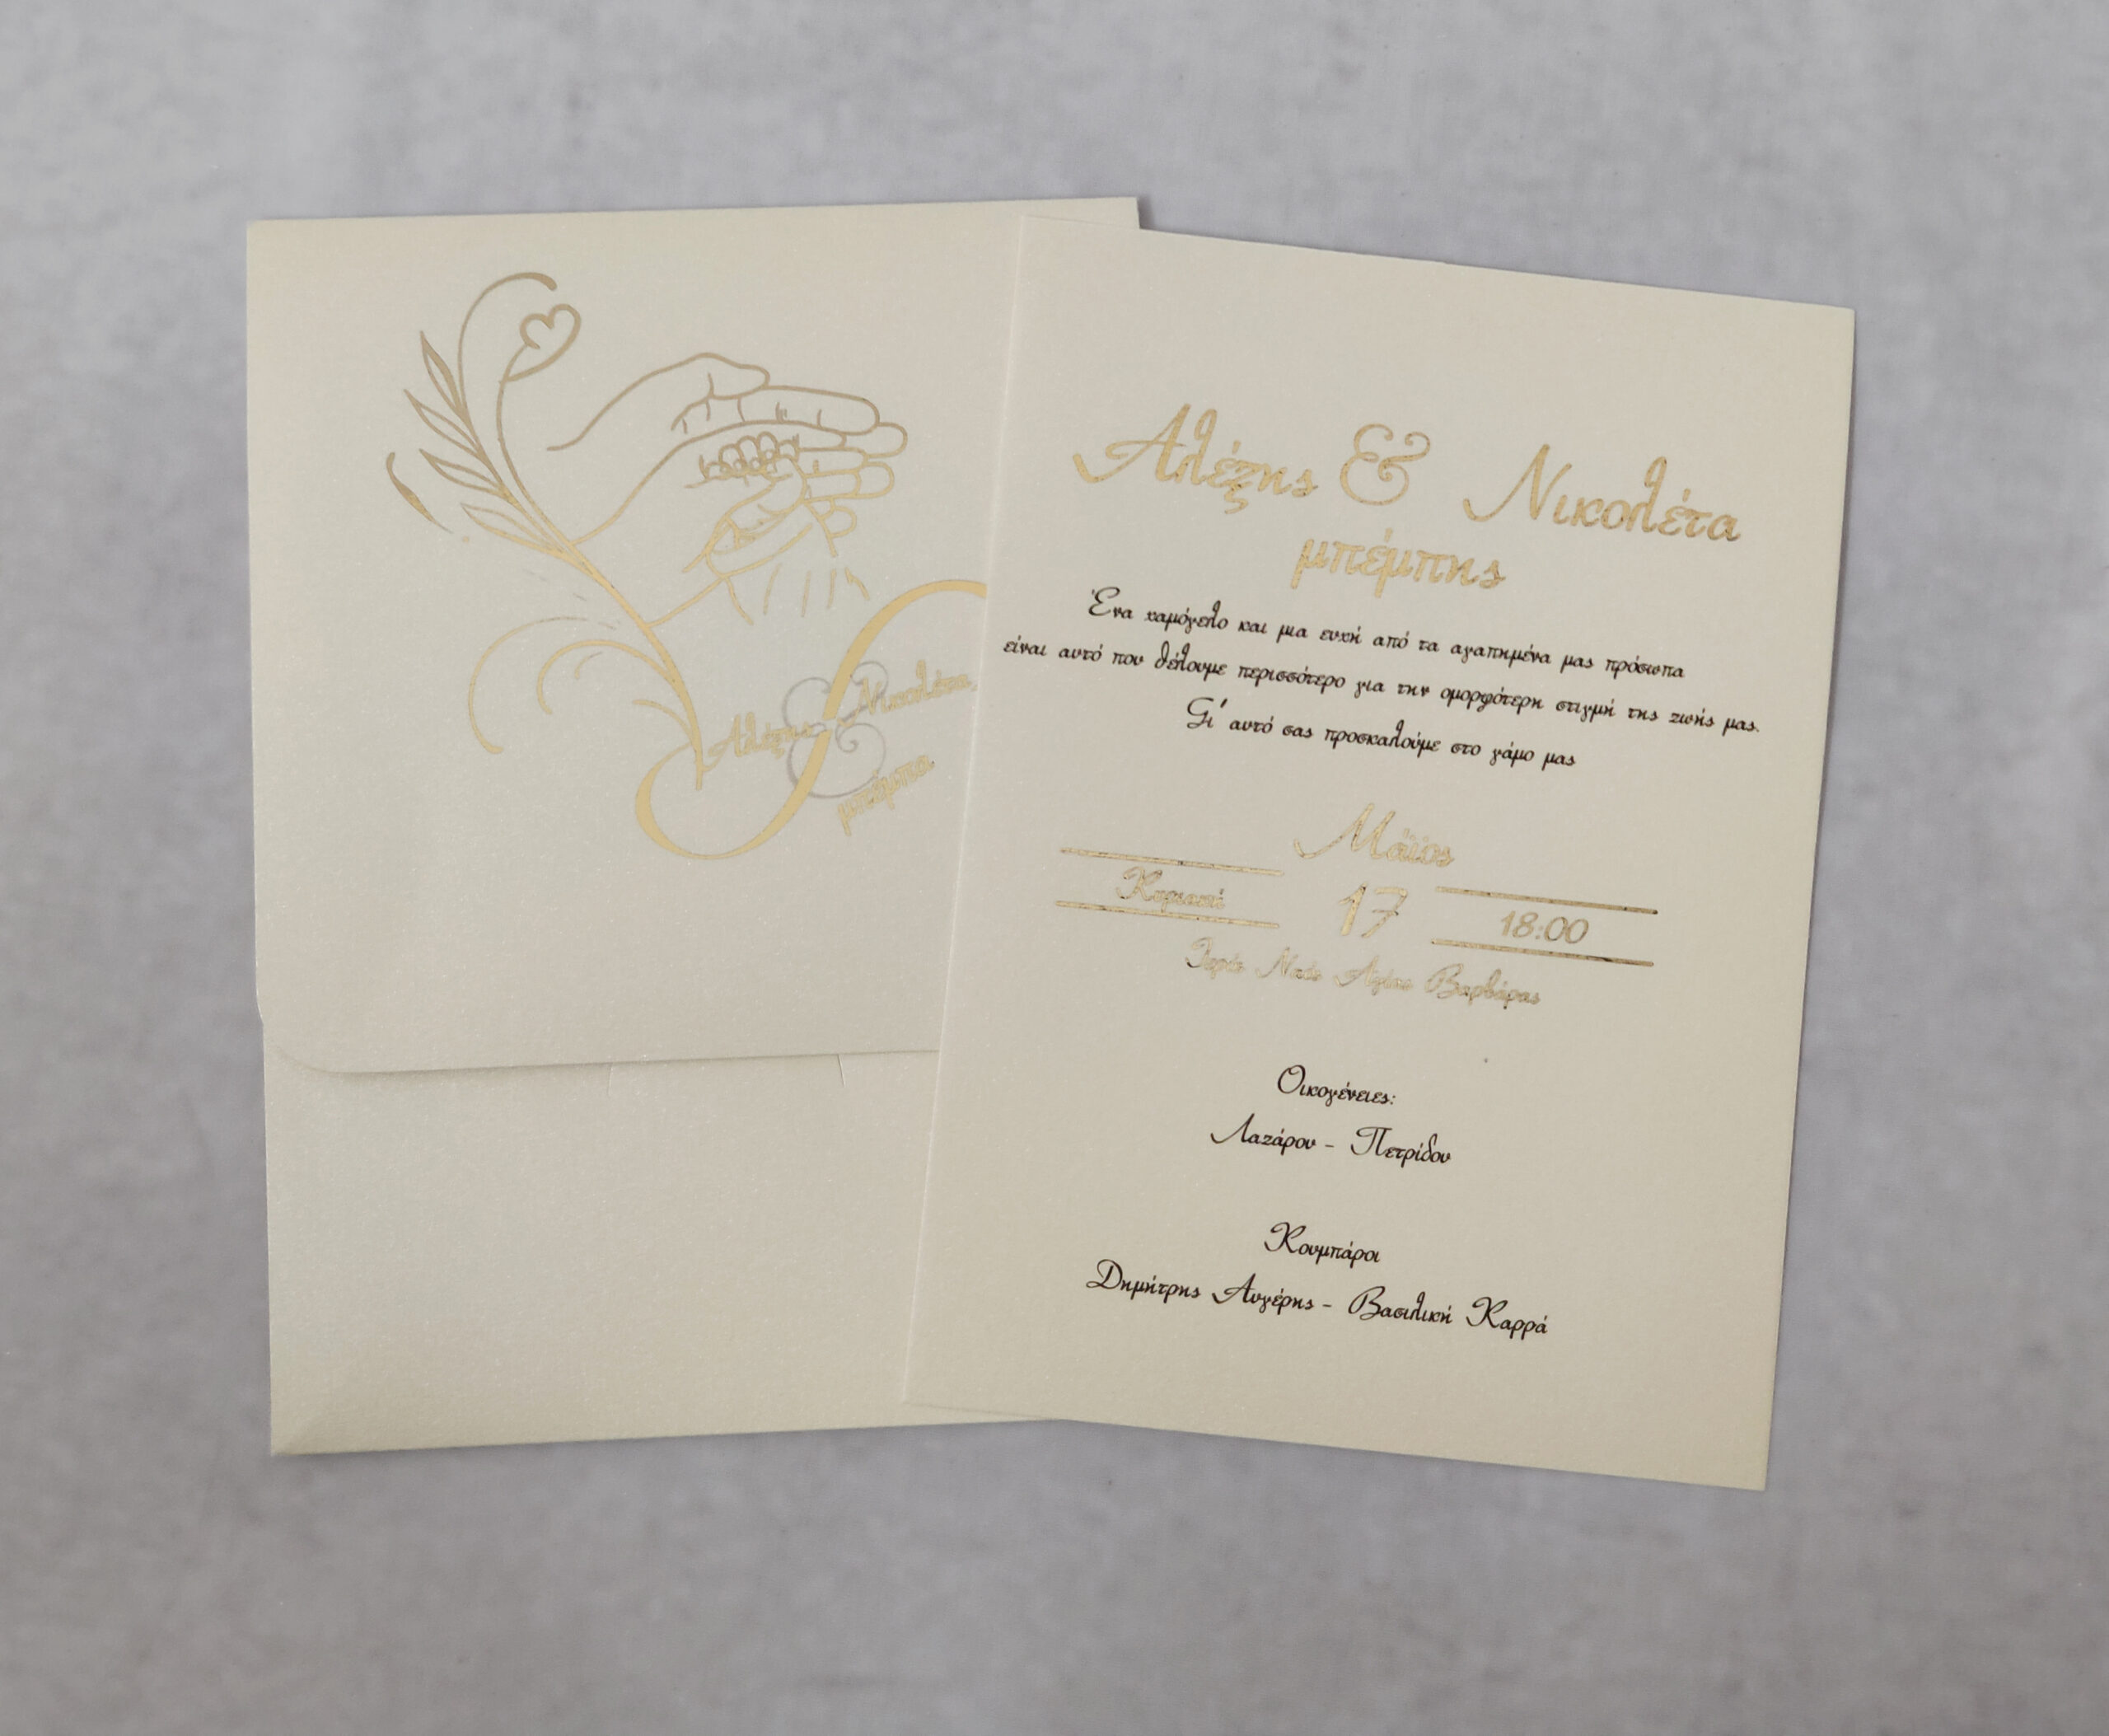 Αλέξης & Νικολέτα
μπέμπα
Αλέξης & Νικολέτα
μπέμπης
Ένα χαμόγελο και μια ευχή από τα αγαπημένα μας πρόσωπα
είναι αυτό που θέλουμε περισσότερο για την ομορφότερη στιγμή της ζωής μας.
Γι' αυτό σας προσκαλούμε στο γάμο μας
Μάϊος
Κυριακή 17 18:00
Ιερός Ναός Αγίας Βαρβάρας
Οικογένειες:
Λαζάρου - Πετρίδου
Κουμπάροι
Δημήτρης Αυγέρης - Βασιλική Καρρά